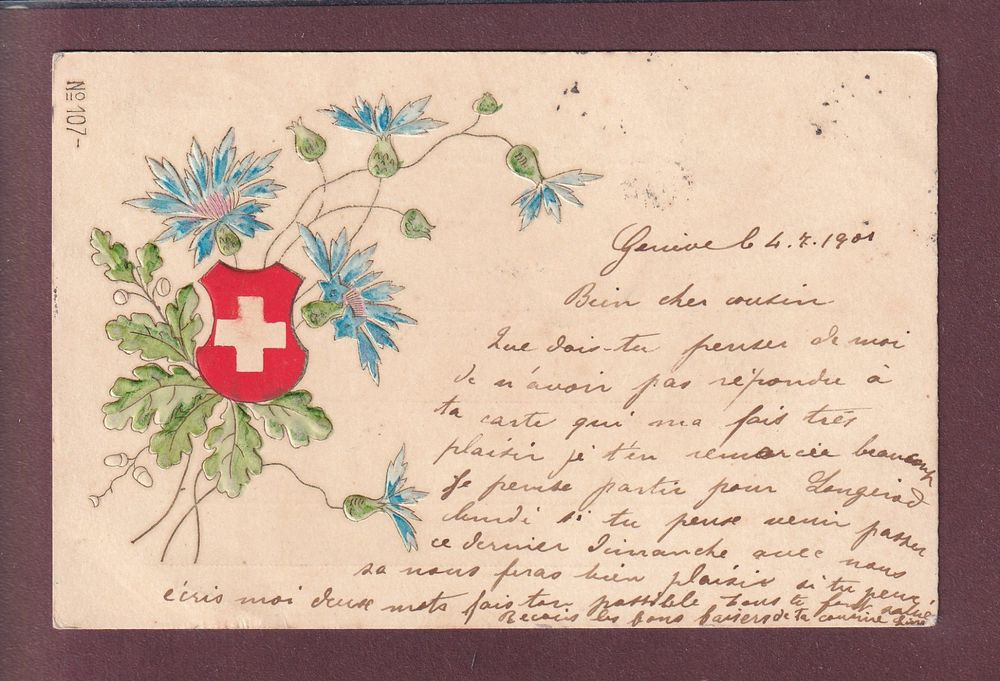 No 107-
Genève le 4.7.1901
Bien cher cousin
Que dois-tu penser de moi
de n'avoir pas répondu à
ta carte qui ma fais très
plaisir je t'en remercie beaucoup
Je pense partir pour
lundi si tu peux venir passer
ce dernier Dimanche avec nous
sa nous feras bien plaisir si tu peux
écris moi deux mots fais ton possible tous te font
Reçois les bons baisers de ta cousine